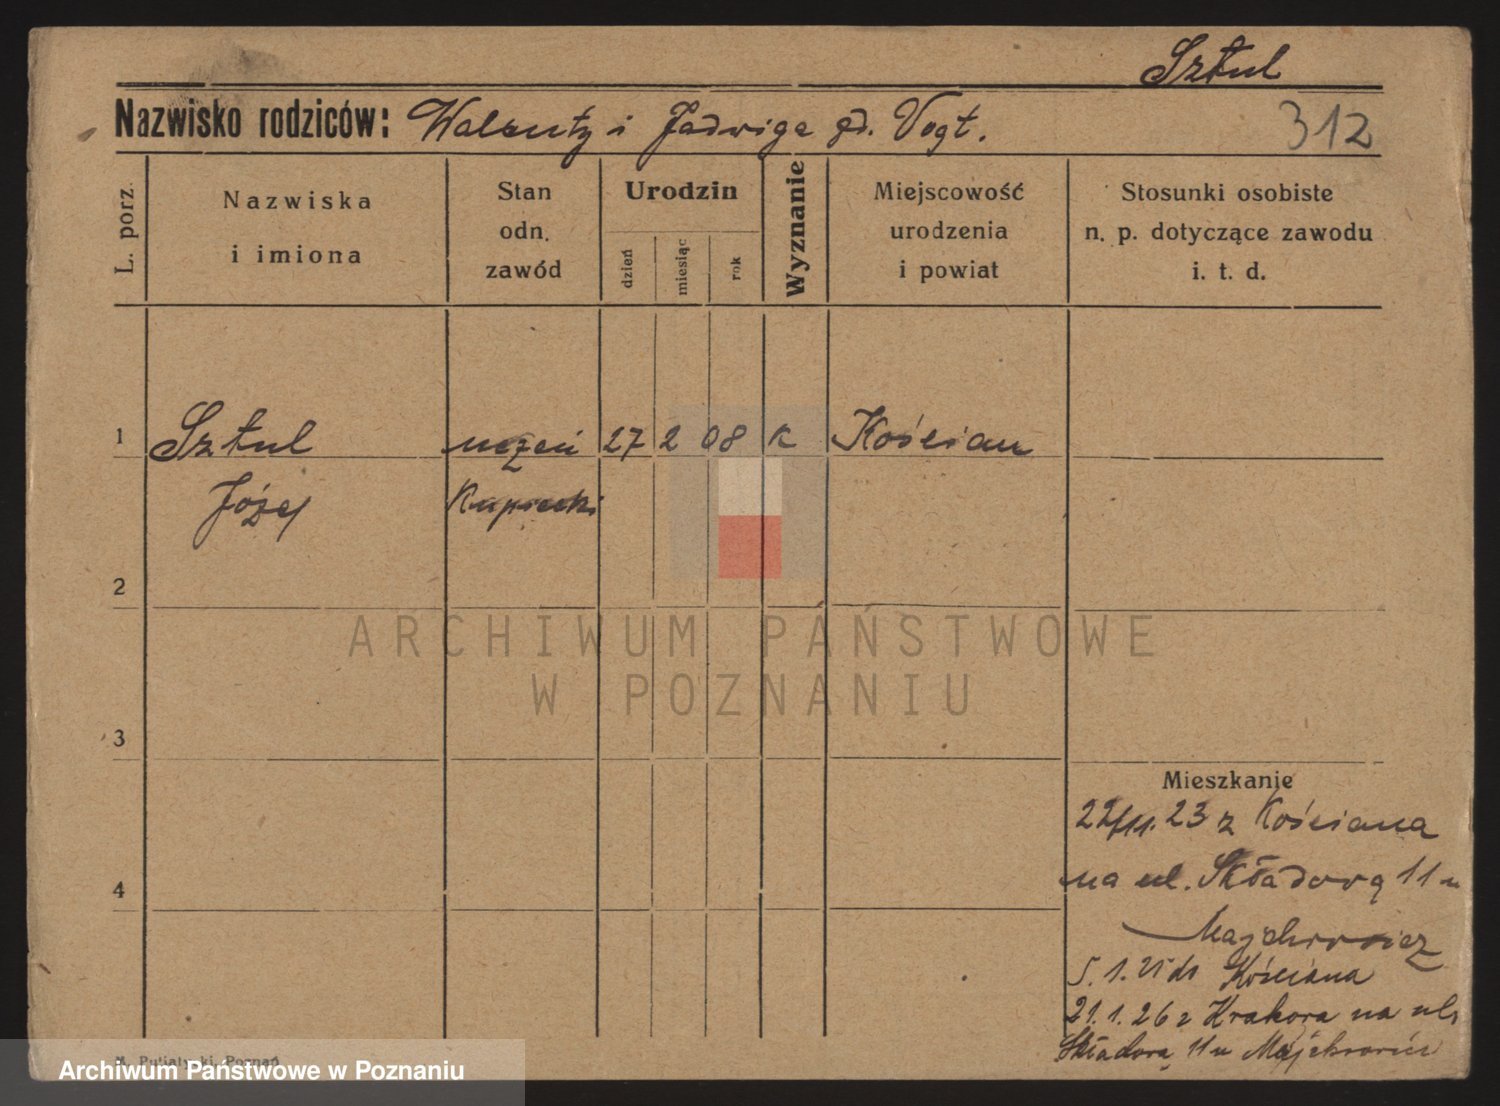 Sztul
Nazwisko rodziców: Walenty i Jadwiga gd. Vogt.
312
L. porz.
Nazwiska
i imiona
Stan
odn.
zawód
Urodzin
dzień
miesiąc
rok
Wyznanie
Miejscowość
urodzenia
i powiat
Stosunki osobiste
n. p. dotyczące zawodu
i. t. d.
1 Sztul uczeń 27 2 08 K Kościan
Józef Kupiecki
2
ARCHIWUM PAŃSTWOWE
W POZNANIU
3
Mieszkanie
22/11.23 z Kościana
na ul. Składową 11 u
4
Majchrowicz
5.1.25 do Kościana
21.1.26 z Krakowa na ul.
Składową 11 u Majchrowicz
M. Putiatycki, Poznań
Archiwum Państwowe w Poznaniu